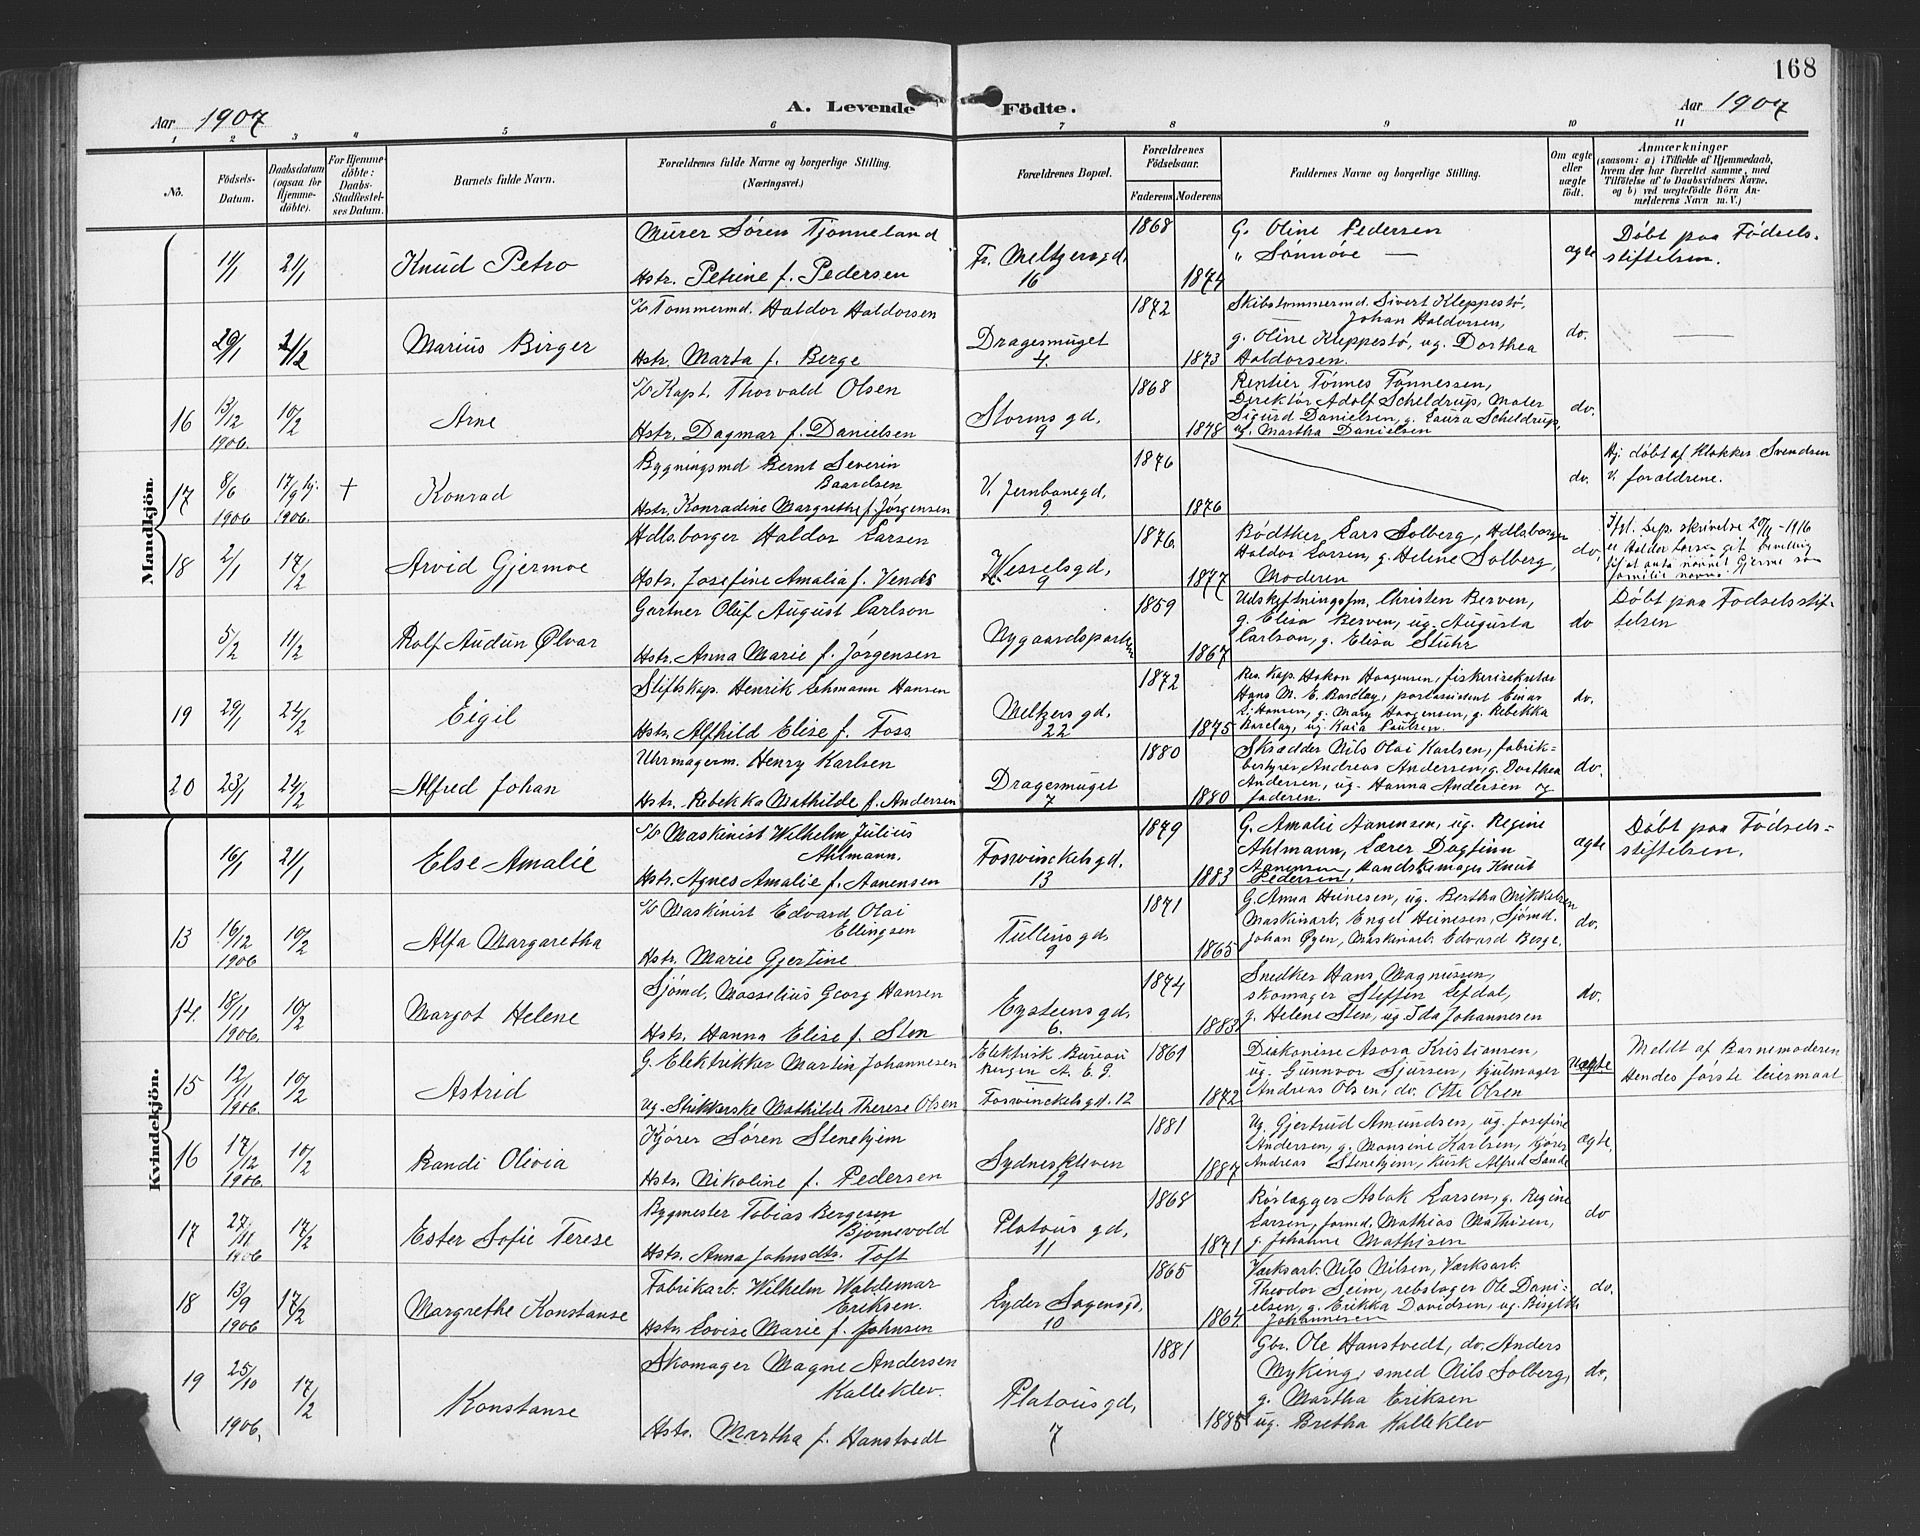 168
Aar 1907
A. Levende Födte.
Aar 1907
1 2 3 4 5 6 7 8 9 10 11
No.
Födsels-Datum.
Daabsdatum (ogsaa for Hjemme-döbte).
For Hjemme-döbte: Daabs-Stadfæstel-ses Datum.
Barnets fulde Navn.
Forældrenes fulde Navne og borgerlige Stilling. (Næringsvei.)
Forældrenes Bopæl.
Forældrenes Födselsaar.
Faderens Moderens
Faddernes Navne og borgerlige Stilling.
Om ægte eller uægte födt.
Anmærkninger
(saasom: a) i Tilfælde af Hjemmedaab, hvem der har forrettet samme, med Tilföielse af to Daabsvidners Navne, og b) ved uægtefödte Börn An-melderens Navn m. V.)
Mandkjön.
11/1 21/1 Knud Petro
Murer Søren Tjønneland
Hstr. Petrine f. Pedersen
Fr. Meltzersgd. 16
1868 1874
G. Oline Pedersen
" Sønnøve —
ægte
Døbt paa Fødsels-
stiftelsen.
20/1 21/2 Marius Birger
Tømmermd. Haldor Haldorsen
Hstr. Marta f. Berge
Dragesmuget 4.
1872 1873
Skibstømmermd. Sivert Kleppestø,
Johan Haldorsen,
g. Oline Kleppestø, ug. Dorthea
Haldorsen.
do. —
16 13/12 1906. 10/2 Arne
Kapt. Thorvald Olsen
Hstr. Dagmar f. Danielsen
Stormsgd. 9
1868 1878
Rentier Tønnes Tønnessen,
Direktør Adolf Scheldrup, Mater
Sigurd Danielsen, g. Laura Scheldrup,
ug. Martha Danielsen
do.
17 8/6 1906 17/9 hj. 1906. + Konrad
Bygningsmd Bernt Severin
Baardsen
Hstr. Konradine Margrethe f. Jørgensen
V. Jernbanegd. 9
1876 1876
do.
Hj. døbt af Klokker Svendsen
V. forældrene.
18 2/1 17/2 Arvid Gjermoe
Hdlsborger Haldor Larsen
Hstr. Josefine Amalia f. Vends
Wesselsgd. 9
1876. 1877
Bødtker Lars Solberg, Hdlsborger
Haldor Larsen, g. Helene Solberg,
Moderen
do.
Ifgl. Dep. skrivelse 1916
er Haldor Larsen git bevilling
til at anta navnet Gjerme som
familienavn.
5/2 11/2 Rolf Audun Ølvar
Gartner Oluf August Carlson
Hstr. Anna Marie f. Jørgensen
Nygaardsparken
1859 1867
Udskiftningsfm. Christen Berven,
g. Elisa Berven, ug. Augusta
Carlson, g. Elisa Stuhr
do
Døbt paa Fødselsstif-
telsen
19 29/1 24/2 Eigil
Stiftskap. Henrik Lehmann Hansen
Hstr. Alfhild Elise f. Foss
Meltzersgd. 22
1872 1875
Res. Kap. Hakon Haagensen, fiskerisekretær
Hans M. E. Barclay, postassistent Einar
L. Hansen, g. Mary Haagensen, g. Rebekka
Barclay, ug. Kaia Paulsen.
do.
20 23/1 24/2 Alfred Johan
Uhrmagerm. Henry Karlsen
Hstr. Rebekka Mathilde f. Andersen
Dragesmuget 7
1880 1880
Skrædder Nils Olai Karlsen, fabrik-
bestyrer Andreas Andersen, g. Dorthea
Andersen, ug. Hanna Andersen og
faderen.
do.
Kvindekjön.
16/1 21/1 Else Amalie
Maskinist Wilhelm Julius
Ahlmann.
Hstr. Agnes Amalie f. Aanensen
Foswinckelsgd. 13
1879 1883
G. Amalie Aanensen, ug. Regine
Ahlmann, Lærer Dagfinn
Aanensen, Handskemager Knut
Pedersen.
ægte
Døbt paa Fødsels-
stiftelsen.
13 16/12 1906 10/2 Alfa Margaretha
Maskinist Edvard Olai
Ellingsen
Hstr. Marie Gjertine
Tullinsgd. 9
1871 1865
G. Anna Heinesen, ug. Bertha Mikkelsen
Maskinarb. Engel Heinesen, Sjømd.
Johan Øyen, Maskinarb. Edvard Berge.
do.
14. 18/11 1906. 10/2 Margot Helene
Sjømd. Masselius Georg Hansen
Hstr. Hanna Elise f. Sten
Eysteinsgd. 6.
1874 1883
Snedker Hans Magnussen,
skomager Steffen Lefdal,
g. Helene Sten, ug. Ida Johannesen
do.
15 12/11 1906 10/2 Astrid
G. Elektrikker Martin Johannesen
Ug. Strikkerske Mathilde Therese Olsen
Elektrisk Bureau
Bergen A. E. G.
Foswinckelsgd. 12
1861 1872
Diakonisse Asora Kristiansen,
ug. Gunnvor Sjursen, hjulmager
Andreas Olsen, do. Otto Olsen
Uægte
Meldt af Barnemoderen
Hendes første leiermaal
16 17/12 1906. 10/2 Randi Olivia
Kjører Søren Stenehjem
Hstr. Nikoline f. Pedersen
Sydneskleven 19
1881 1887
Ug. Gjertrud Amundsen, ug. Josefine
Andersen, g. Monsine Karlsen, Kjører
Andreas Stenehjem, kusk Alfred Sande
ægte.
17 27/11 1906 17/2 Ester Sofie Terese
Bygmester Tobias Bergesen
Bjørnevold
Hstr. Anna Johnsdtr. Toft
Platous gd. 11
1868 1871
Rørlægger Aslak Larsen, g. Regine
Larsen, formd. Mathias Mathisen,
g. Johanne Mathisen
do
18 13/9 1906 17/2 Margrethe Konstanse
Fabrikarb. Wilhelm Waldemar
Eriksen.
Hstr. Lovise Marie f. Johnsen
Lyder Sagensgd. 10
1865 1864
Værksarb. Nils Nilsen, Værksarb.
Theodor Seim, rebslager Ole Dani-
elsen, g. Erikka Davidsen, ug. Birgith
Johannesen
do.
19 25/10 1906. 17/2 Konstanse
Skomager Magne Andersen
Kalleklev.
Hstr. Martha f. Hanstvedt
Platousgd. 7
1881 1885
Gbr. Ole Hanstvedt, do. Anders
Myking, smed Nils Solberg,
g. Martha Eriksen
ug. Bretha Kalleklev
do.